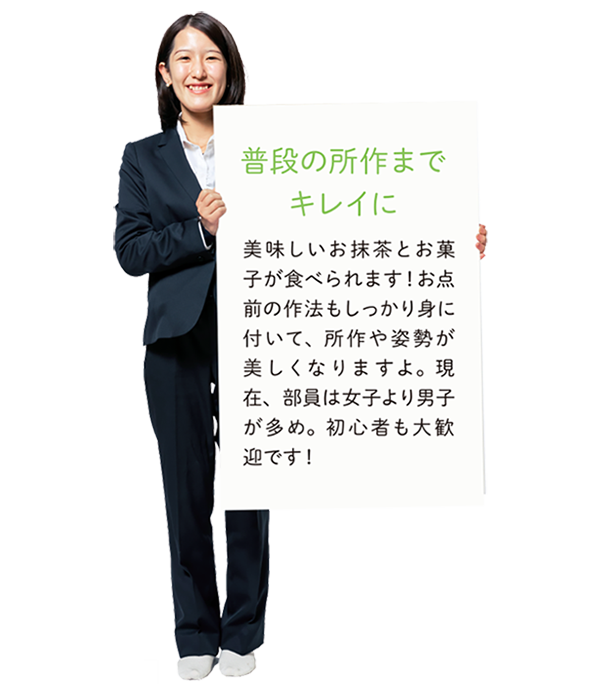 普段の所作まで
キレイに
美味しいお抹茶とお菓
子が食べられます！お点
前の作法もしっかり身に
付いて、所作や姿勢が
美しくなりますよ。現
在、部員は女子より男子
が多め。初心者も大歓
迎です！